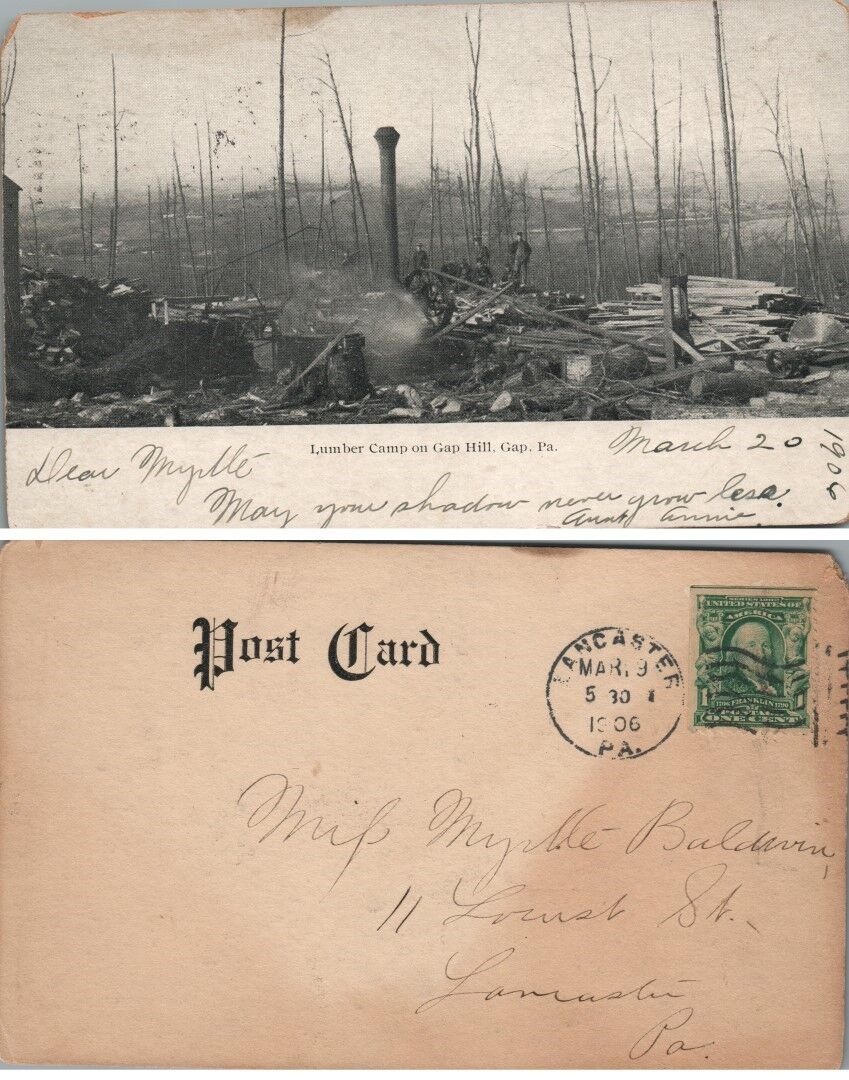 Lumber Camp on Gap Hill, Gap, Pa.
March 20 1906
Dear Myrtle
May your shadow never grow less.
Aunt Annie.
Post Card
LANCASTER
MAR 19
5 30
1906
PA.
SERIES 1902
UNITED STATES OF
AMERICA
1706 FRANKLIN 1790
POSTAGE
1 1
ONE CENT
Miss Myrtle Baldwin,
11 Locust St.
Lancaster
Pa.